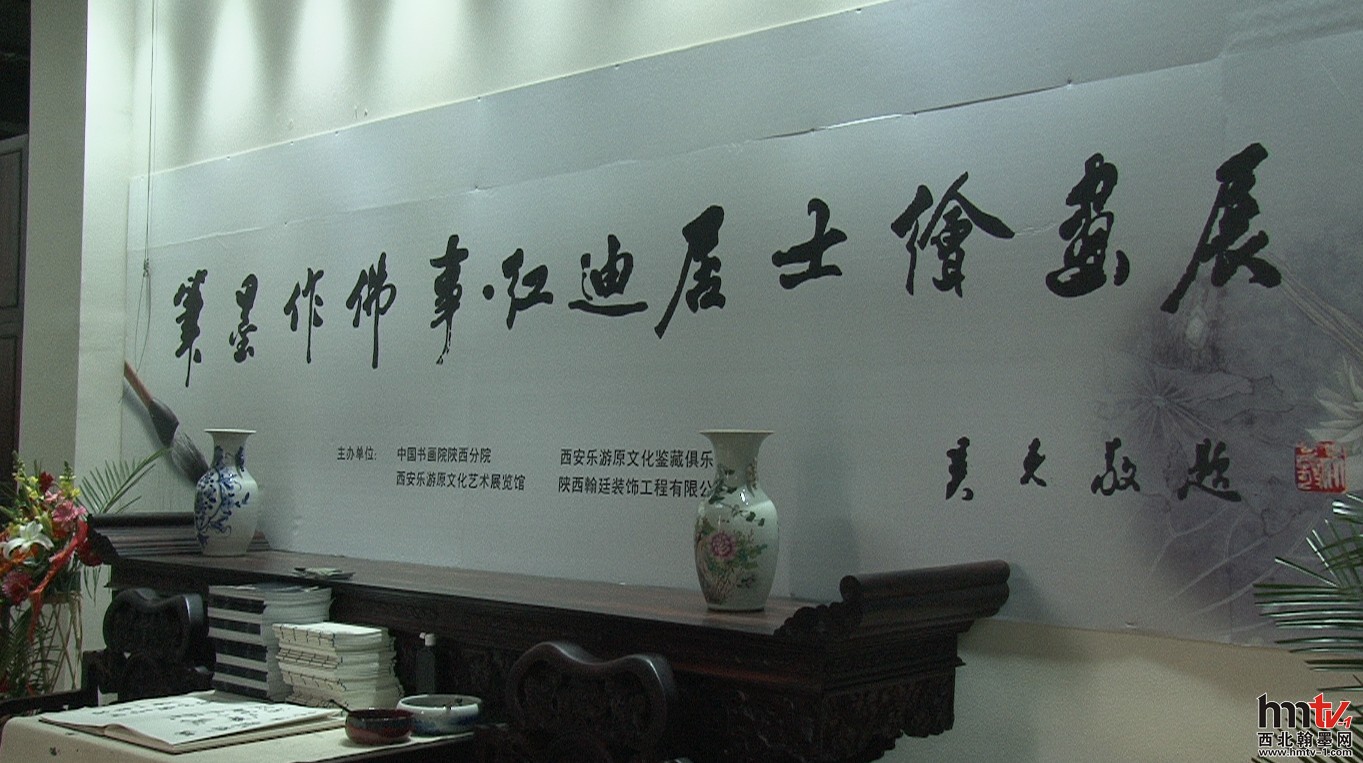 筆墨作佛事·紅迪居士繪畫展
主办单位: 中国书画院陕西分院 西安乐游原文化鉴藏俱乐
西安乐游原文化艺术展览馆 陕西翰廷装饰工程有限公
敬題
hmtv-1
西北翰墨网
www.hmtv-1.com